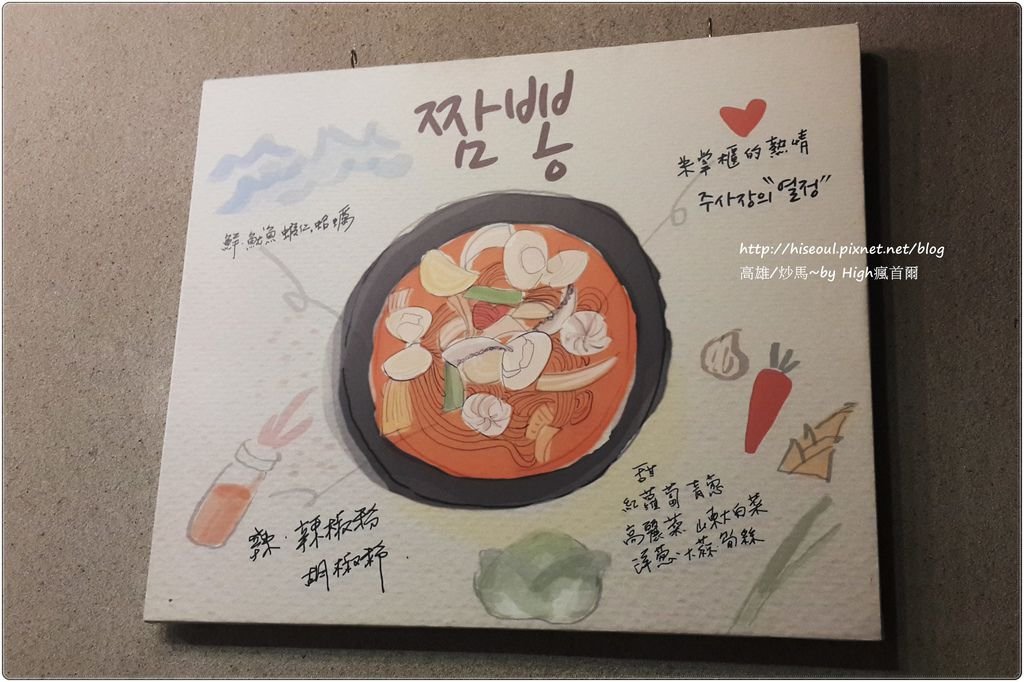 짬뽕
朱掌櫃的熱情
주사장의 "열정"
鮮·魷魚 蝦仁 蛤蠣
http://hiseoul.pixnet.net/blog
高雄/炒馬~by High瘋首爾
甜
紅蘿蔔 青蔥
高麗菜 山東大白菜
洋蔥·大蒜 筍絲
辣·辣椒粉
胡椒粉